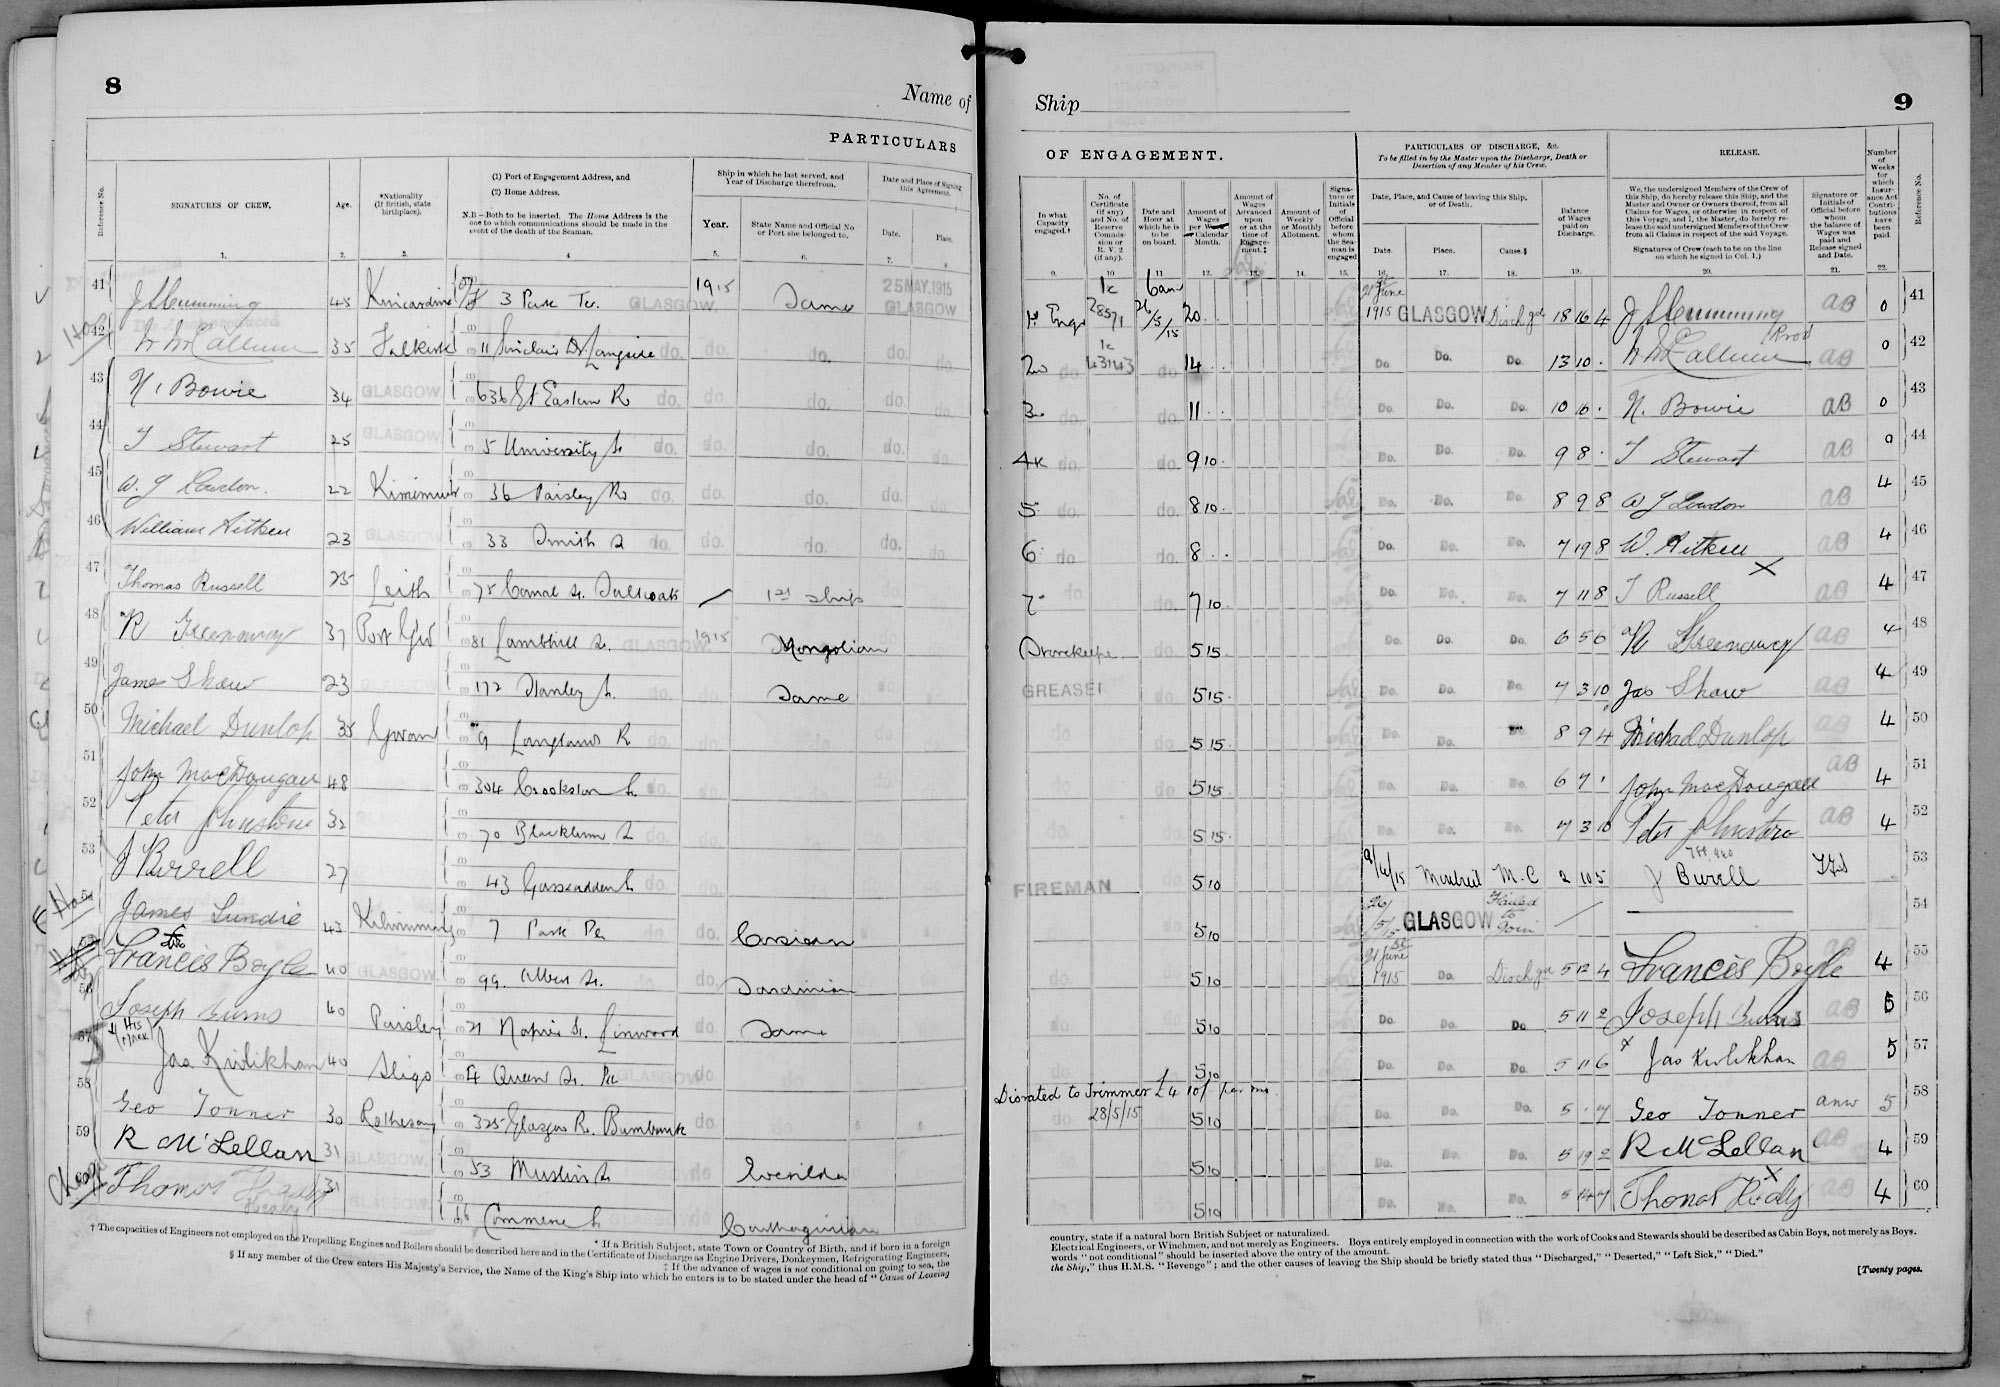 8
Name of
PARTICULARS
Reference No.
SIGNATURES OF CREW.
Age.
*Nationality (If British, state birthplace).
(1) Port of Engagement Address, and
(2) Home Address.
N.B—Both to be inserted. The Home Address is the one to which communications should be made in the event of the death of the Seaman.
Ship in which he last served, and Year of Discharge therefrom.
Year.
State Name and Official No or Port she belonged to.
Date and Place of Signing this Agreement.
Date.
Place.
1. 2. 3. 4 5. 6. 7 8
41 45 Kincardine 3 Park Te. GLASGOW. 1915 Same 25 MAY.1915 GLASGOW
42 35 Falkirk 11 Sinclair Dr. Langside do. do. do. do. do.
43 N. Bowie 34 GLASGOW. 636 Gt Eastern R do. do. do. do. do.
44 T Stewart 25 GLASGOW 5 University St. do. do. do. do. do.
45 22 Kirriemuir 36 Paisley Rd do. do. do. do. do.
46 William Aitken 23 GLASGOW. 33 Smith St do. do. do. do. do.
47 Thomas Russell 25 Leith 75 Comal St. Saltcoats 1st ship
48 R Greenaway 37 Port Gw 81 Lambhill St. GLASGOW. 1915 Mongolian
49 James Shaw 23 172 Stanley St. do. do. Same
50 Michael Dunlop 35 Govan 9 Langlands R do.
51 John MacDougall 48 304 Crookston St. do.
52 Peter Johnstone 32 70 Blackburn St
53 J Burrell 27 43 Gascadden St do.
54 James Lundie 43 Kilwinning 7 Park Pl do. do. Corsican
55 Francis Boyle 40 GLASGOW 99 Albert St. Sardinian
56 Joseph Burns 40 Paisley 21 Napier St. Linwood do. Same
57 His mark Jas Kivlikhan 40 Sligo 4 Queen St. GLASGOW do
58 Geo Tonner 30 Rothesay 325 Glasgow Rd. Burnbank do.
59 R McLellan 31 GLASGOW. 53 Muslin St do Evenilda
60 Thomas Healy 31 66 Commerce St GLASGOW do Carthaginian
† The capacities of Engineers not employed on the Propelling Engines and Boilers should be described here and in the Certificate of Discharge as Engine Drivers, Donkeymen, Refrigerating Engineers,
* If a British Subject, state Town or Country of Birth, and if born in a foreign
‡ If the advance of wages is not conditional on going to sea, the
§ If any member of the Crew enters His Majesty's Service, the Name of the King's Ship into which he enters is to be stated under the head of "Cause of Leaving
Ship
9
OF ENGAGEMENT.
PARTICULARS OF DISCHARGE, &c.
To be filled in by the Master upon the Discharge, Death or Desertion of any Member of his Crew.
RELEASE.
Number of Weeks for which Insurance Act Contributions have been paid.
Reference No.
In what Capacity engaged.†
No. of Certificate (if any) and No. of Reserve Commission or R. V. 2 (if any).
Date and Hour at which he is to be on board.
Amount of Wages per Calendar Month.
Amount of Wages Advanced upon or at the time of Engagement.‡
Amount of Weekly or Monthly Allotment.
Signature or Initials of Official before whom the Seaman is engaged
Date, Place, and Cause of leaving this Ship, or of Death.
Date.
Place.
Cause.§
Balance of Wages paid on Discharge.
We, the undersigned Members of the Crew of this Ship, do hereby release this Ship, and the Master and Owner or Owners thereof, from all Claims for Wages, or otherwise in respect of this Voyage, and I, the Master, do hereby release the said undersigned Members of the Crew from all Claims in respect of the said Voyage.
Signatures of Crew (each to be on the line on which he signed in Col. 1.)
Signature or Initials of Official before whom the balance of Wages was paid and Release signed and Date.
9. 10 11 12. 13. 14. 15. 16. 17. 18. 19. 20. 21. 22.
1st Engr 28571 6 am 26/5/15 20 21st June 1915 GLASGOW Dischgd 18 16 4 AB 0 41
2nd do 43143 do. 14 Do Do. Do. 13 10 AB 0 42
3 do. do. 11 Do. Do. Do. 10 6 N. Bowie AB 0 43
4th do. do. 9 10 Do. Do. Do. 9 8 T Stewart AB 0 44
5 do. do. 8 10 Do. Do. Do. 8 9 8 W J Lowdon AB 4 45
6 do do. 8 Do. Do. Do. 7 19 8 W. Aitken AB 4 46
7 do. 7 10 Do. Do. Do. 7 11 8 T Russell AB 4 47
Storekeeper do. 5 15 Do. Do. Do. 6 5 6 R Greenaway AB 4 48
GREASER do. 5 15 Do. Do. Do. 7 3 10 Jas Shaw AB 4 49
do. do. 5 15 Do. Do. 8 9 4 Michael Dunlop AB 4 50
do. do. 5 15 Do. Do. Do. 6 7 John MacDougall AB 4 51
do. 5 15 Do. Do. Do. 7 3 10 Peter Johnstone AB 4 52
FIREMAN do. 5 10 9/6/15 Montreal M.C 2 10 5 J Burrell 53
do. 5 10 26/5/15 GLASGOW Failed to Join 54
do. do. 5 10 21st June 1915 Do. Dischgd 5 12 4 Francis Boyle AB 4 55
do. do. 5 10 Do. Do. Do 5 11 2 Joseph Burns AB 5 56
do. do. 5 10 Do. Do. Do. 5 11 6 x Jas Kivlikhan AB 5 57
Disrated to Trimmer £4 10/ per mo. 28/5/15
5 10 Do. Do. Do. 5 . 7 Geo Tonner anw 5 58
do. do. 5 10 Do. Do. Do. 5 19 2 R McLellan AB 4 59
do. do. 5 10 Do. Do. Do. 5 14 7 Thomas Healy AB 4 60
country, state if a natural born British Subject or naturalized.
Electrical Engineers, or Winchmen, and not merely as Engineers. Boys entirely employed in connection with the work of Cooks and Stewards should be described as Cabin Boys, not merely as Boys.
words "not conditional" should be inserted above the entry of the amount.
the Ship," thus H.M.S. "Revenge"; and the other causes of leaving the Ship should be briefly stated thus "Discharged," "Deserted," "Left Sick," "Died."
[Twenty pages.